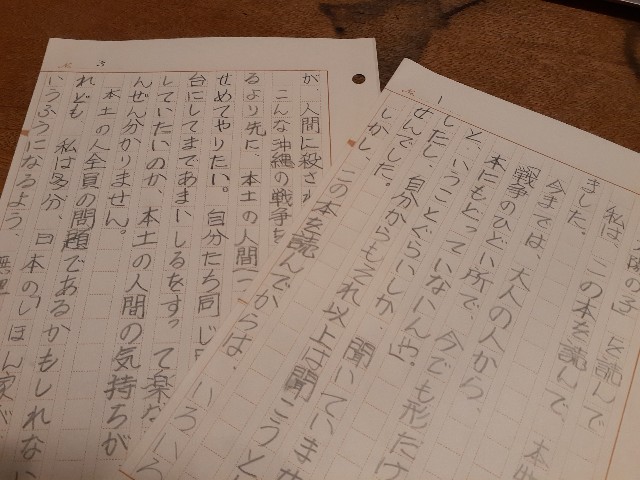 間の子」を読んで
私は、この本を読んで、本
きました。
今までは、大人の人から、
「戦争のひどい所で、今でも形だけ
本にもどっていないんや。
と、いうことぐらいしか、聞いていませ
しだし、自分からもそれ以上は聞こうと
せんでした。
しかし、この本を読んでからは、いろいろ
1
が、人間に殺され
こんな沖縄の戦争を
るより先に、本土の人間(一
せめてやりたい。自分たち同じ
台にしてまであまいしるをすって楽な
していたいのか、本土の人間の気持ちが
んぜん分かりません。
本土の人全員の問題であるかもしれない
れども、私は多分、日本の「ほん家が
いうふうになるよう、無理
No. 3